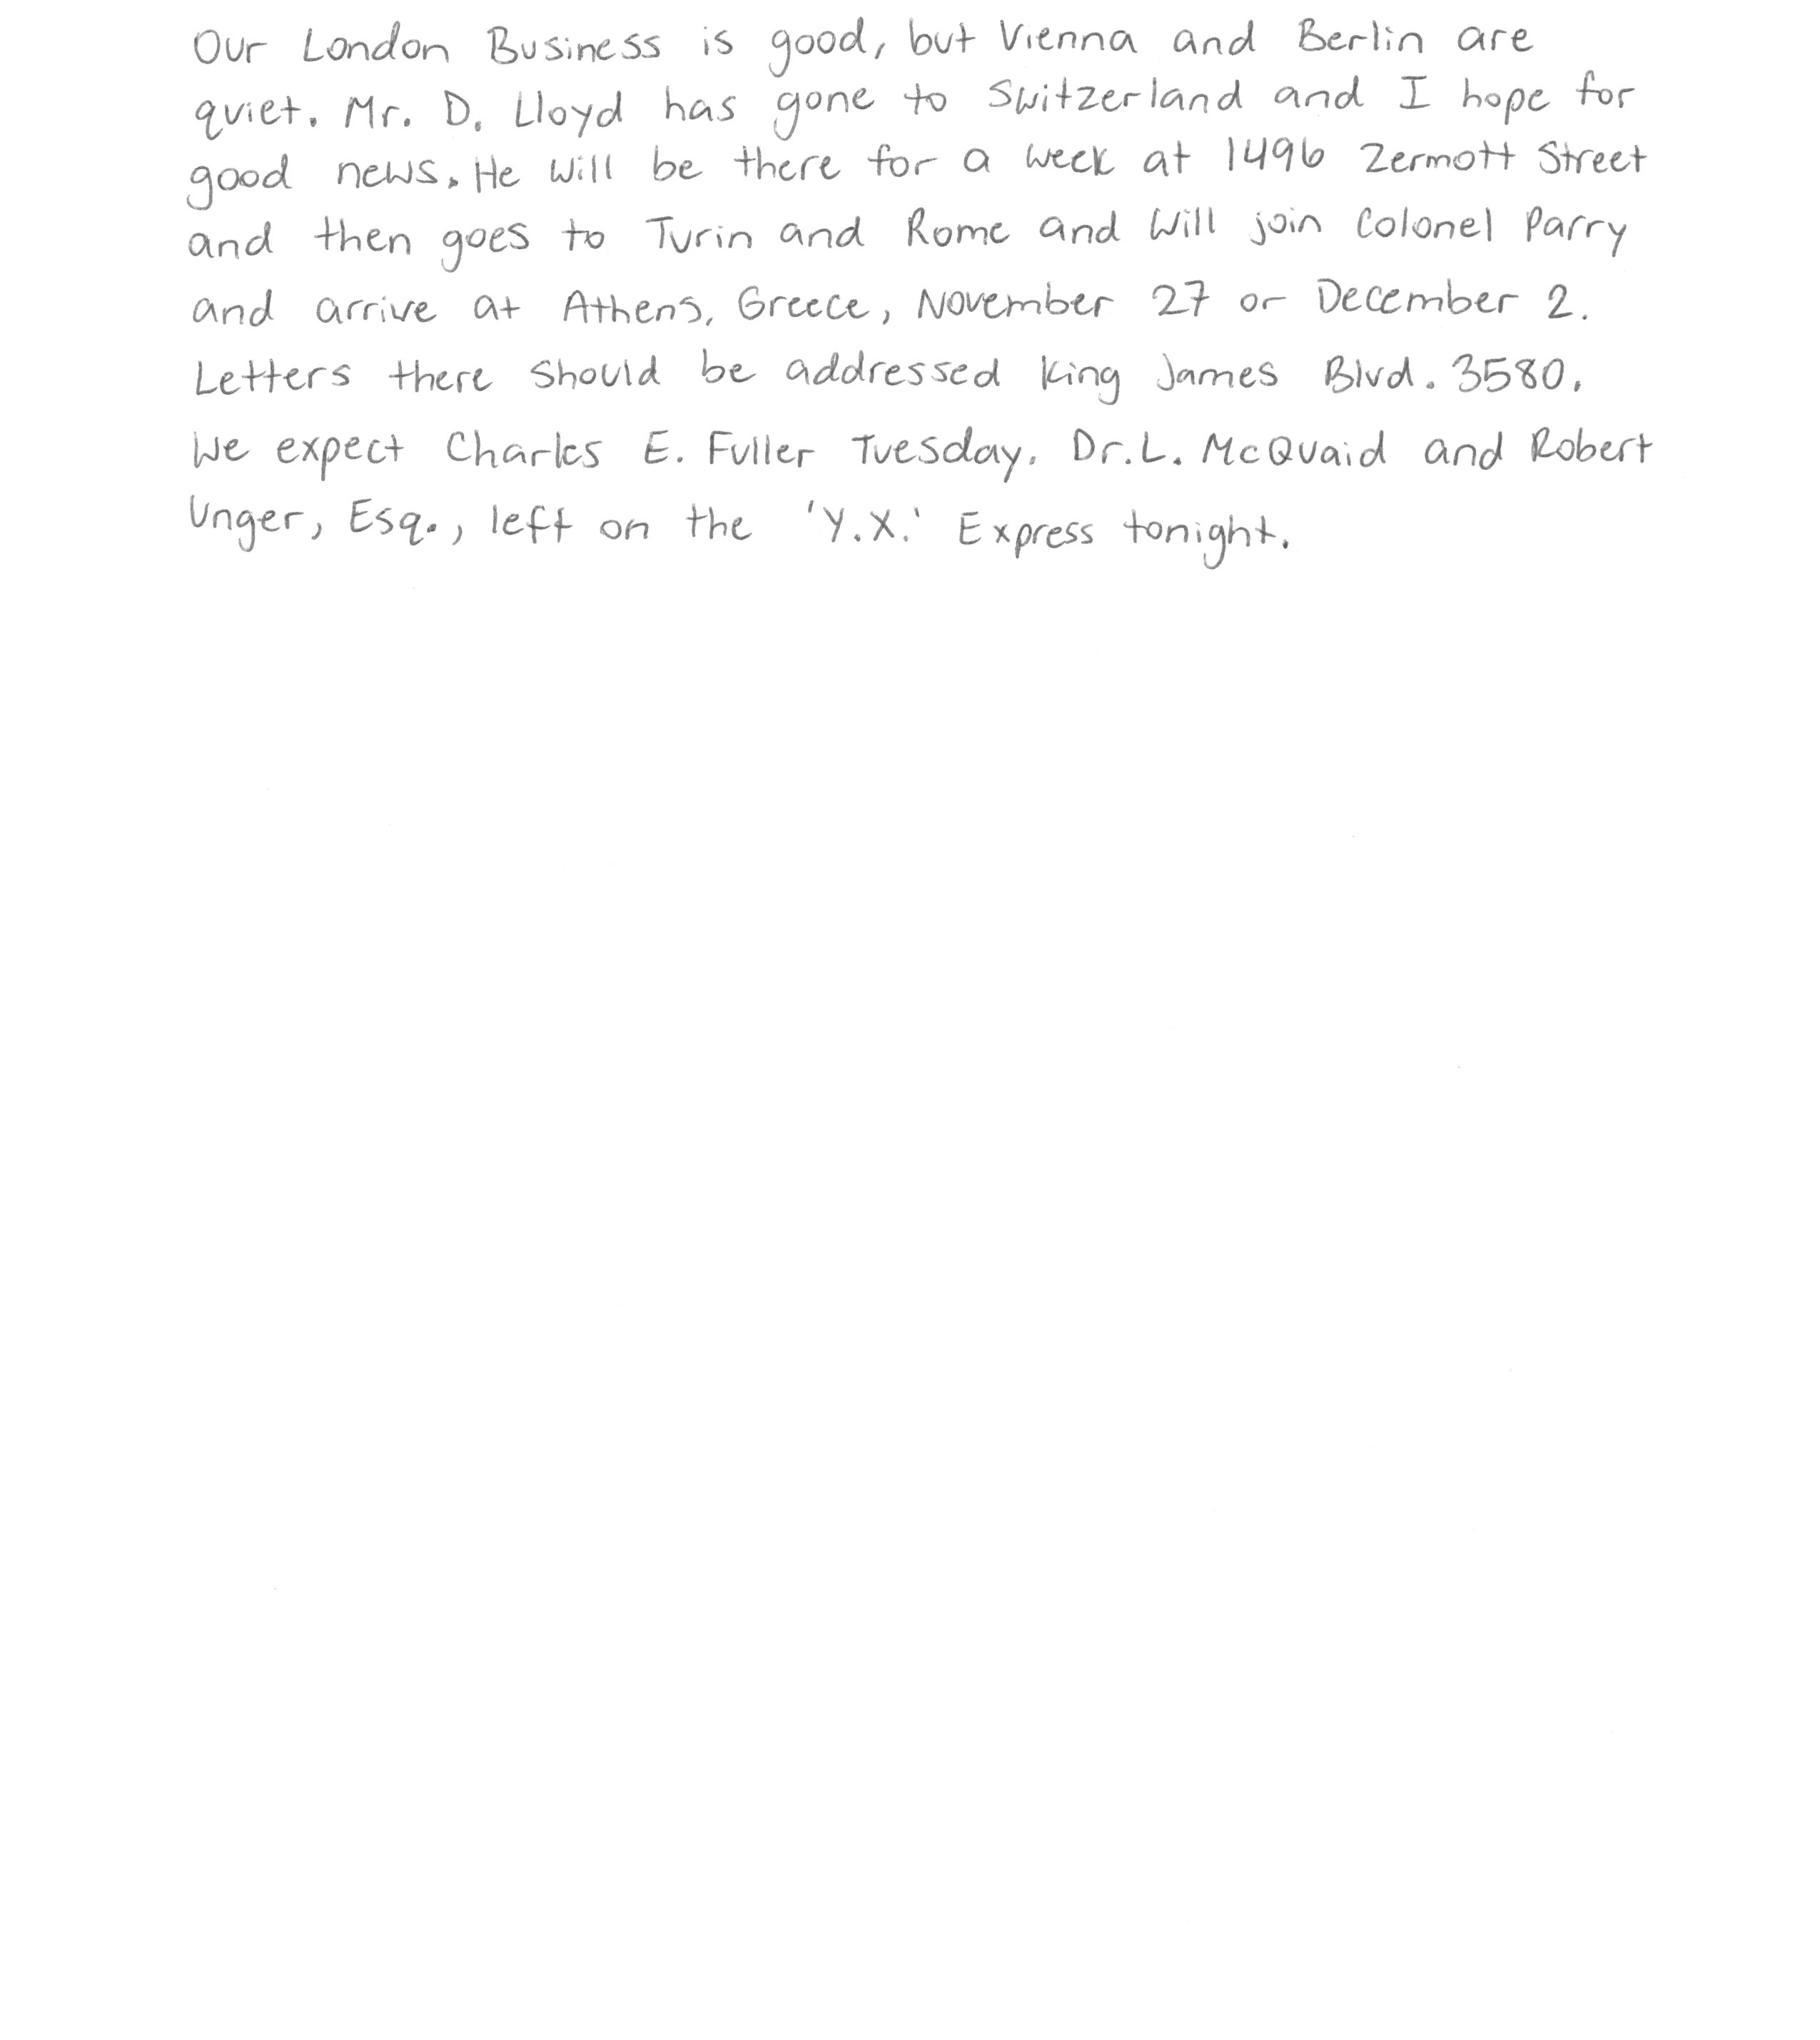 Our London Business is good, but Vienna and Berlin are
quiet. Mr. D. Lloyd has gone to Switzerland and I hope for
good news. He will be there for a week at 1496 Zermott Street
and then goes to Turin and Rome and will join Colonel Parry
and arrive at Athens, Greece, November 27 or December 2.
Letters there should be addressed King James Blvd. 3580.
We expect Charles E. Fuller Tuesday. Dr. L. McQuaid and Robert
Unger, Esq., left on the 'Y.X.' Express tonight.